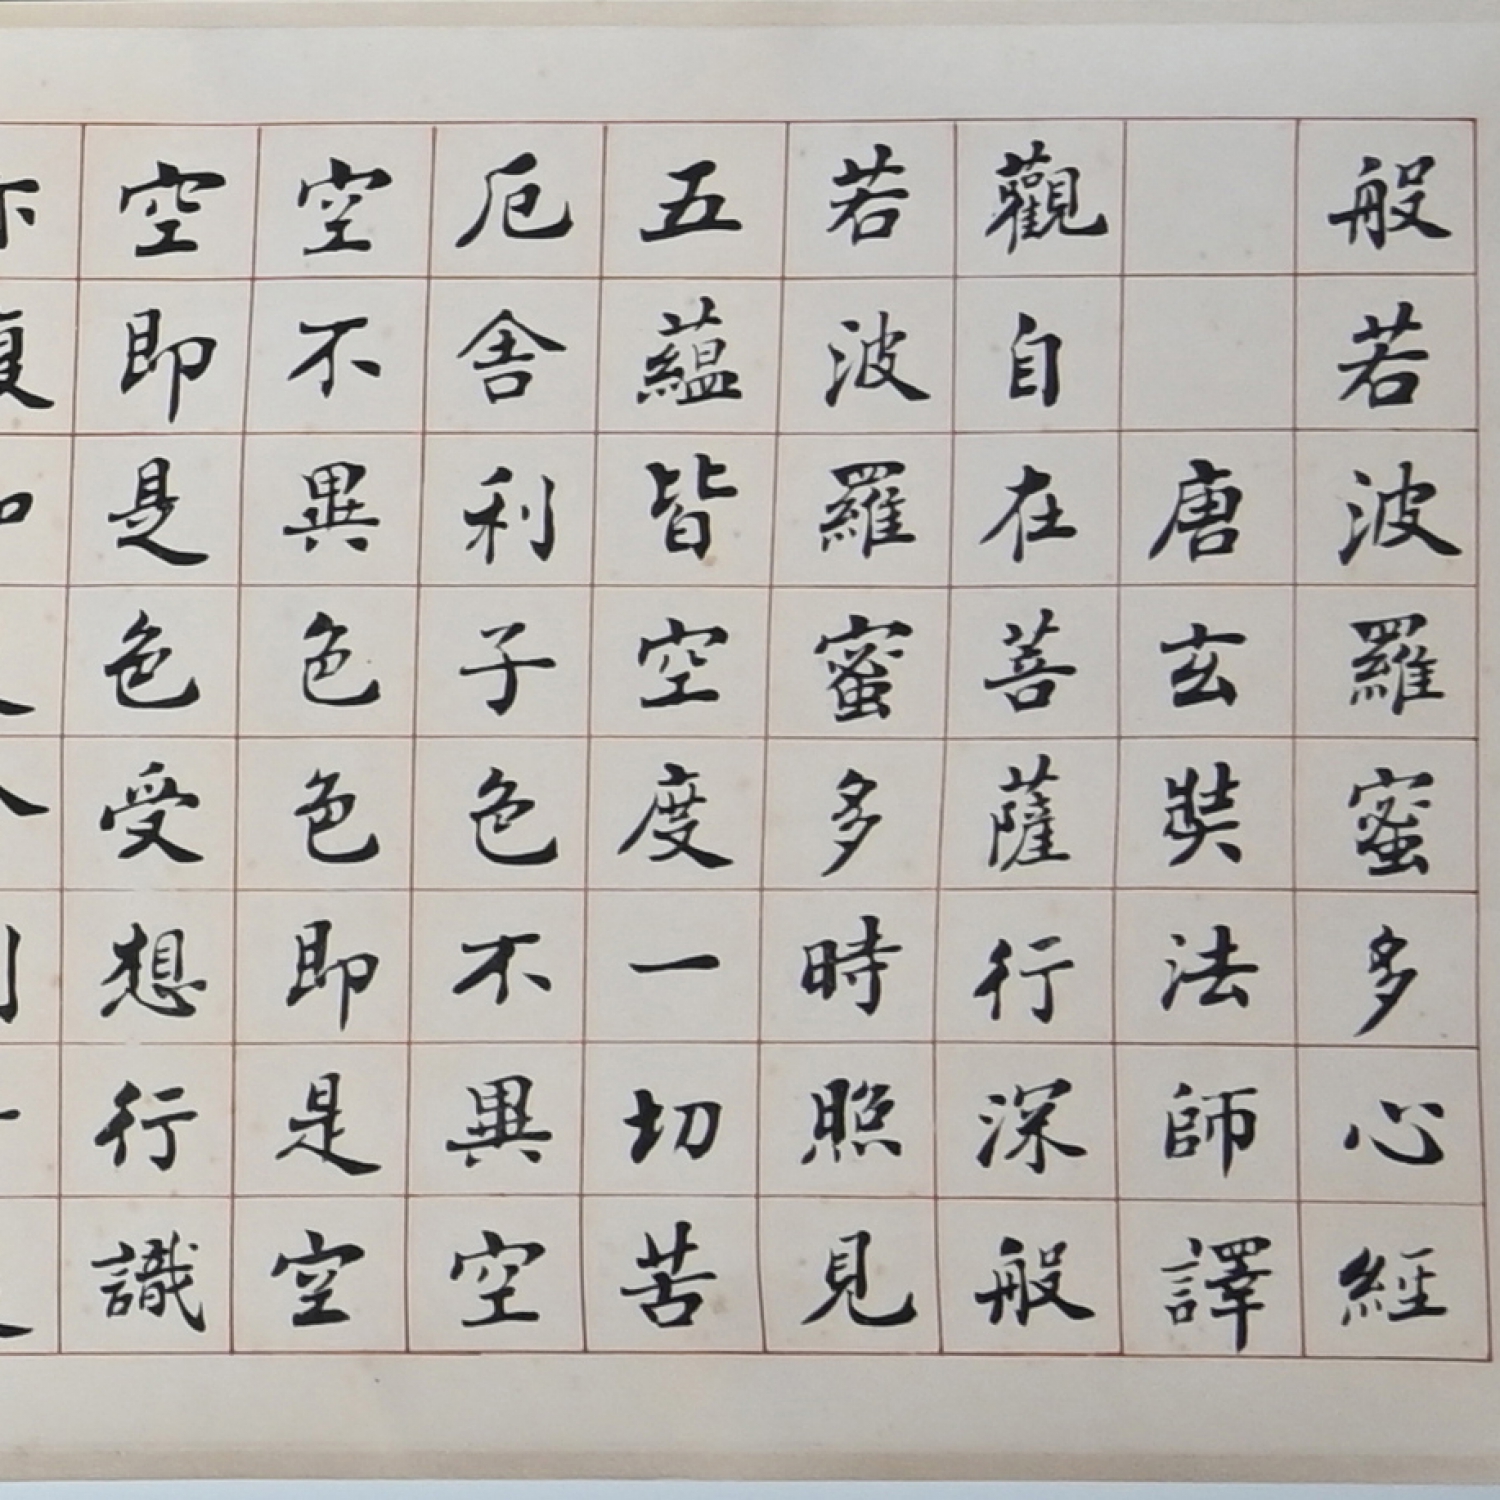 般若波羅蜜多心經
唐玄奘法師譯
觀自在菩薩行深般
若波羅蜜多時照見
五蘊皆空度一切苦
厄舍利子色不異空
空不異色色即是空
空即是色受想行識